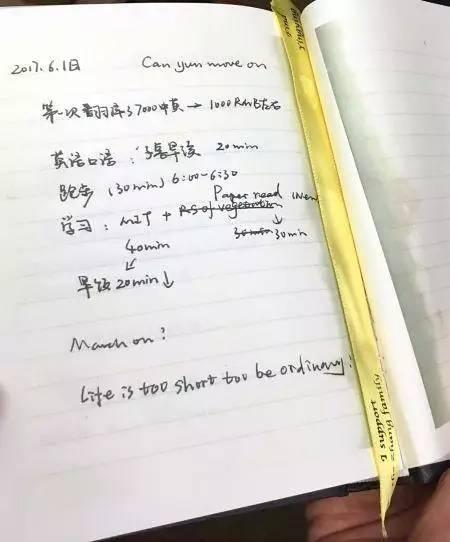 2017.6.1日 Can yun move on
第一次 7000中英 → 1000RMB左右
英语口语: 早读 20min
跑步 (30min) 6:00-6:30
Paper read
学习: MIT + RS of vegetation
40min 30min 30min
↙
早饭 20min↓
March on?
Life is too short too be ordinary!
I support
Family